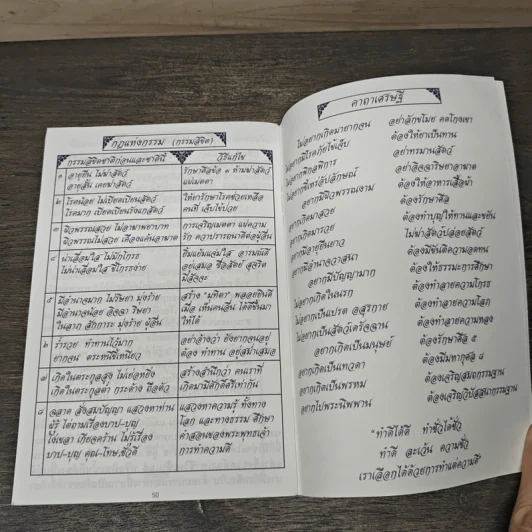 กฎแห่งกรรม (กรรมลิขิต)
กรรมลิขิตชาติก่อนและชาตินี้
วิธีแก้ไข
๑ อายุยืน ไม่ฆ่าสัตว์
อายุสั้น เคยฆ่าสัตว์
รักษาศีลข้อ ๑ ห้ามฆ่าสัตว์
แผ่เมตตา
๒ โรคน้อย ไม่เบียดเบียนสัตว์
โรคมาก เบียดเบียนรังแกสัตว์
ให้ยารักษาโรคช่วยเหลือ
คนที่ เจ็บไข้ป่วย
๓ ผิวพรรณสวย ไม่อาฆาตพยาบาท
ผิวพรรณไม่สวย เคืองแค้นอาฆาต
การเจริญเมตตา แผ่ความ
รัก ความปรารถนาดีต่อผู้อื่น
๔ น่าเลื่อมใส ไม่มักโกรธ
ไม่น่าเลื่อมใส ขี้โกรธง่าย
ยิ้มแย้มแจ่มใส อารมณ์ดี
อยู่เสมอ ซื่อสัตย์ สุจริต
มีสัจจะ
๕ มีอำนาจมาก ไม่ริษยา มุ่งร้าย
มีอำนาจน้อย อิจฉา ริษยา
ในลาภ สักการะ มุ่งร้าย ผู้อื่น
สร้าง "มุทิตา" พลอยยินดี
เมื่อ เห็นคนอื่น ได้ดีขึ้นมา
ให้ได้
๖ ร่ำรวย ทำทานไว้มาก
ยากจน ตระหนี่ขี้เหนียว
อย่าอ้างว่า ยังยากจนอยู่
ต้อง ทำทาน อยู่สม่ำเสมอ
๗ เกิดในตระกูลสูง ไม่เย่อหยิ่ง
เกิดในตระกูลต่ำ กระด้าง ถือตัว
สร้างสำนึกว่า คนเราที่
เกิดมามีศักดิ์ศรีเท่ากัน
๘ ฉลาด สั่งสมปัญญา แสวงหาท่าน
ผู้รู้ ไต่ถามเรื่องบาป-บุญ
โง่เขลา เกียจคร้าน ไม่รู้เรื่อง
บาป-บุญ คุณ-โทษ, ชั่วดี
แสวงหาความรู้ ทั้งทาง
โลก และทางธรรม ศึกษา
คำสอนของพระพุทธเจ้า
การทำความดี
50
คาถาเศรษฐี
ไม่อยากเกิดมายากจน อย่าลักขโมย คดโกงเขา
ไม่อยากมีโรคภัยไข้เจ็บ ต้องให้ยาเป็นทาน
ไม่อยากพิกลพิการ อย่าทรมานสัตว์
ไม่อยากขี้เหร่อัปลักษณ์ อย่าอิจฉาริษยาอาฆาต
อยากมีผิวพรรณงาม ต้องให้อาหารเสื้อผ้า
อยากเกิดมาสวย ต้องรักษาศีล
อยากเกิดมารวย ต้องทำบุญให้ทานและขยัน
อยากมีอายุยืนยาว ไม่ฆ่าสัตว์ปล่อยสัตว์
อยากมีอำนาจวาสนา ต้องมีขันติความอดทน
อยากมีปัญญามาก ต้องให้ธรรมะการศึกษา
ไม่อยากเกิดในนรก ต้องทำลายความโกรธ
ไม่อยากเป็นเปรต อสุรกาย ต้องทำลายความโลภ
ไม่อยากเป็นสัตว์เดรัจฉาน ต้องทำลายความหลง
อยากเกิดเป็นมนุษย์ ต้องรักษาศีล ๕
อยากเกิดเป็นเทวดา ต้องมีมหากุศล ๘
อยากเกิดเป็นพรหม ต้องเจริญสมถกรรมฐาน
อยากไปพระนิพพาน ต้องเจริญวิปัสสนากรรมฐาน
"ทำดีได้ดี ทำชั่วได้ชั่ว
ทำดี ละเว้น ความชั่ว
เราเลือกได้ด้วยการทำแต่ความดี"